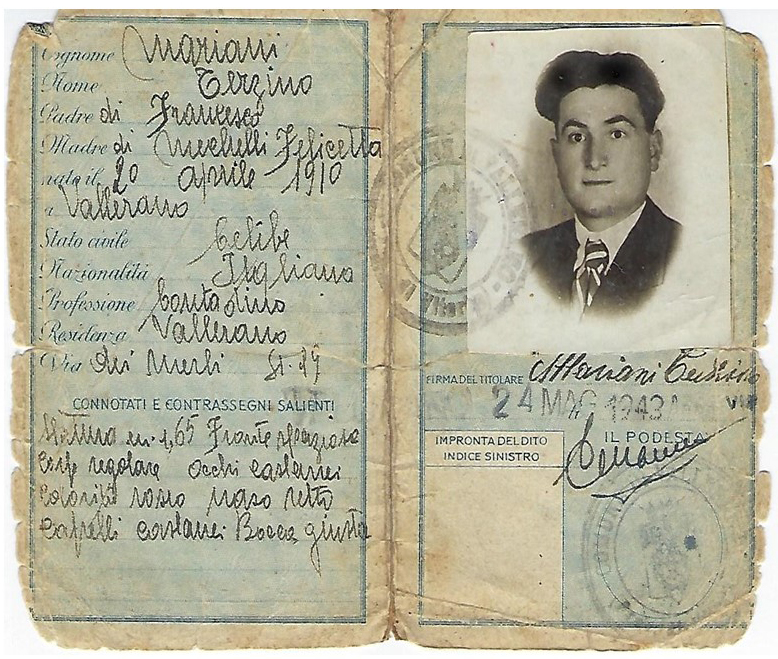 Cognome Mariani
Nome Terzino
Padre di Francesco
Madre di Mechelli Felicetta
nato il 20 aprile 1910
a Vallerano
Stato civile Celibe
Nazionalità Italiana
Professione Contadino
Residenza Vallerano
Via dei Merli
CONNOTATI E CONTRASSEGNI SALIENTI
Statura m. 1,65 Fronte spaziosa
Corp. regolare occhi castanei
Colorito roseo naso retto
Capelli castanei Bocca giusta
FIRMA DEL TITOLARE Mariani Terzino
24 MAG 1943
IMPRONTA DEL DITO
INDICE SINISTRO
IL PODESTA'